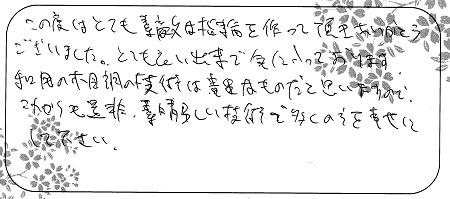 この度はとても素敵な指輪を作って頂きありがとう
ございました。とても良い出来で気に入っております。
和田の木目調の技術は貴重なものだと思いますので、
これからも是非、素晴らしい技術で多くの方を幸せに
して下さい。